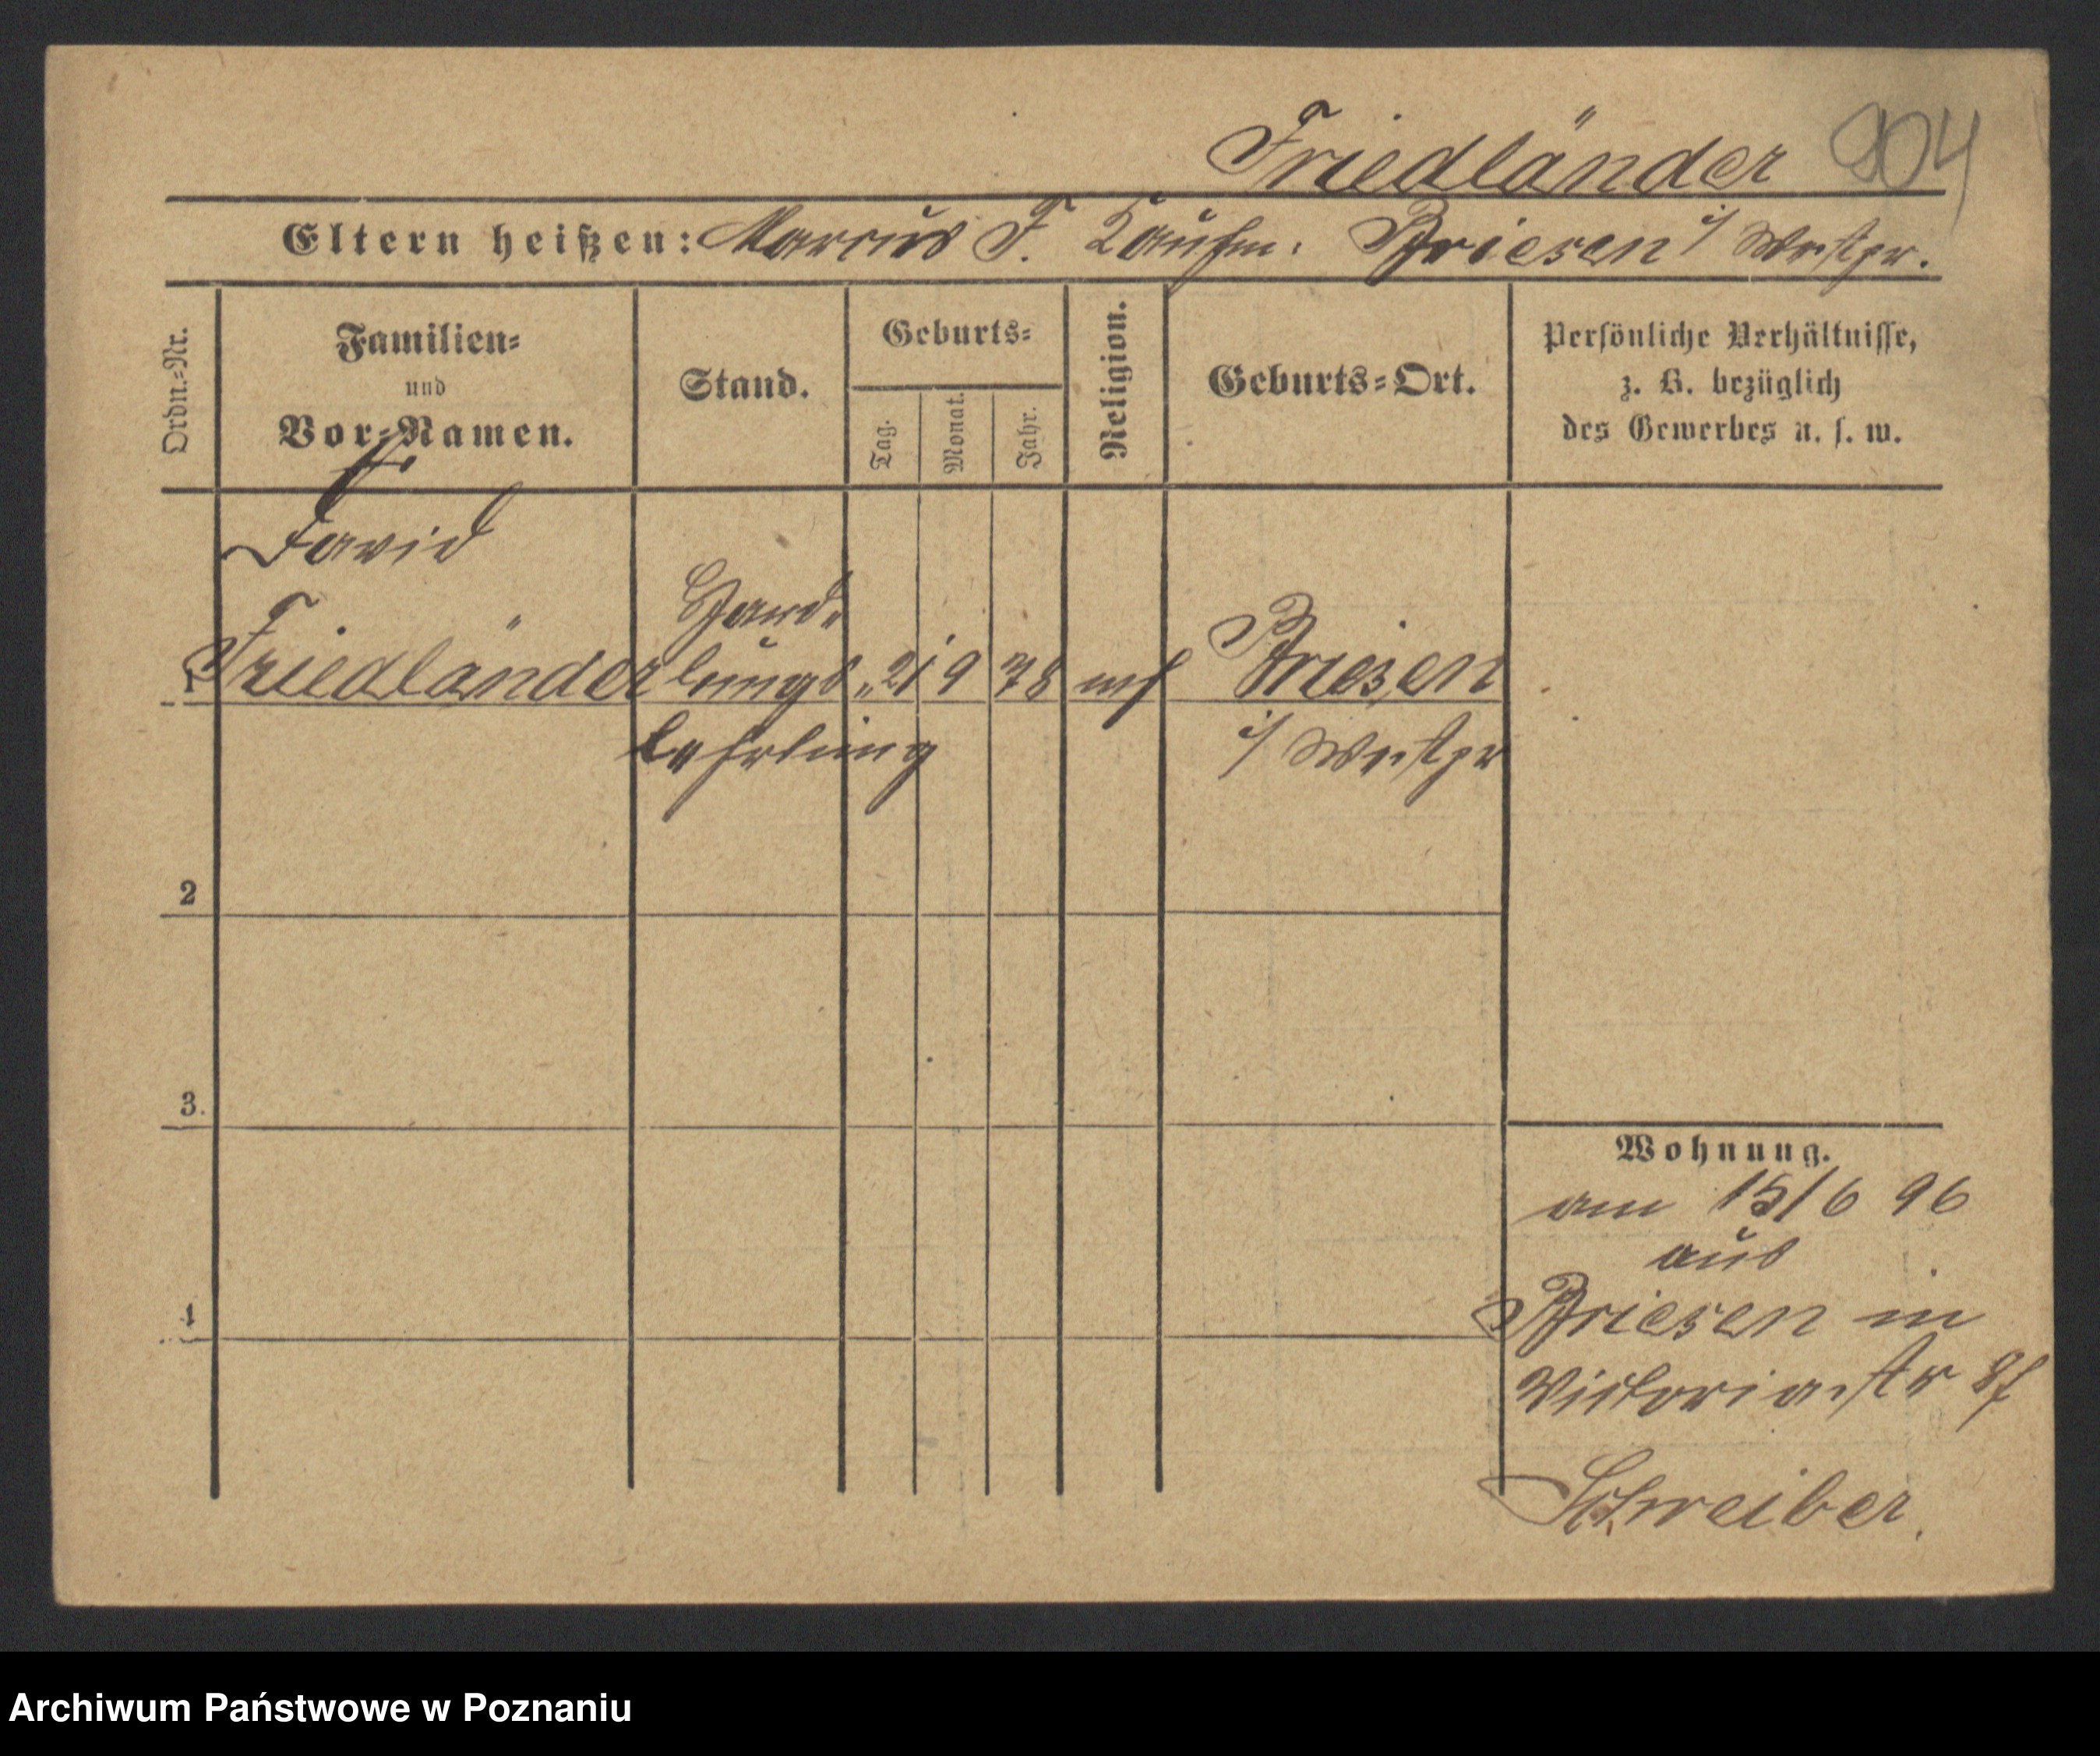 Friedländer 904
Eltern heißen: Marcus F. Kaufm. Briesen i/ Westpr.
Ordn.-Nr.
Familien-
und
Vor-Namen.
Stand.
Geburts-
Tag.
Monat.
Jahr.
Religion.
Geburts-Ort.
Persönliche Verhältnisse,
z. B. bezüglich
des Gewerbes u. s. w.
David
Hand-
1 Friedländer lungs- 21 9 78 mos Briesen
lehrling i/ Westpr
2
3.
4
Wohnung.
am 15/6 96
aus
Briesen in
Victoriastr
Schreiber.
Archiwum Państwowe w Poznaniu